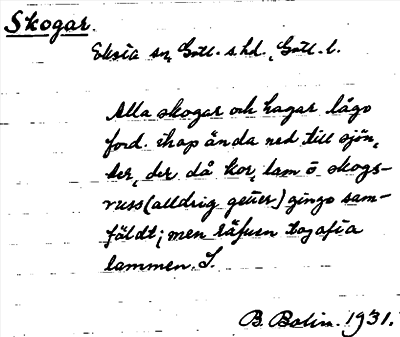 Skogar.
Eksta sn, Gotl. s. hd., Gotl. l.
Alla skogar och hagar lågo
ford. ihop ända ned till sjön,
der, der då kor, lam o skogs-
russ (alldrig getter) gingo sam-
fäldt; men räfven togo fia
lammen. S.
B. Bolin. 1931.